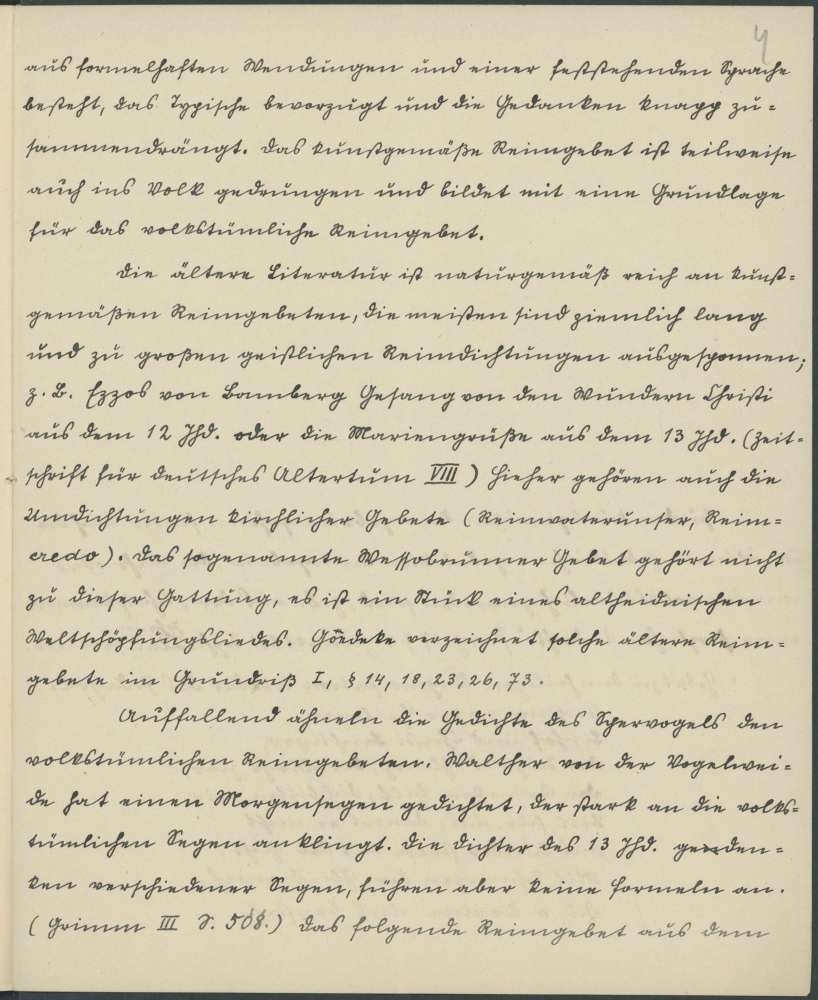 4
aus formelhaften Wendungen und einer feststehenden Sprache
besteht, das Typische bevorzugt und die Gedanken knapp zu-
sammendrängt. Das kunstgemäße Reimgebet ist teilweise
auch ins Volk gedrungen und bildet mit eine Grundlage
für das volkstümliche Reimgebet.
Die ältere Literatur ist naturgemäß reich an kunst-
gemäßen Reimgebeten, die meisten sind ziemlich lang
und zu großen geistlichen Reimdichtungen ausgesponnen;
z. B. Ezzos von Bamberg Gesang von den Wundern Christi
aus dem 12 Jhd. oder die Mariengrüße aus dem 13 Jhd. (Zeit-
schrift für deutsches Altertum VIII) Hieher gehören auch die
Umdichtungen kirchlicher Gebete (Reimvaterunser, Reim-
credo). Das sogenannte Wessobrunner Gebet gehört nicht
zu dieser Gattung, es ist ein Stück eines altheidnischen
Weltschöpfungsliedes. Goedeke verzeichnet solche ältere Reim-
gebete im Grundriß I, § 14, 18, 23, 26, 73.
Auffallend ähneln die Gedichte des Spervogels den
volkstümlichen Reimgebeten. Walther von der Vogelwei-
de hat einen Morgensegen gedichtet, der stark an die volks-
tümlichen Segen anklingt. Die Dichter des 13 Jhd. geden-
ken verschiedener Segen, führen aber keine Formeln an.
(Grimm III S. 508.) Das folgende Reimgebet aus dem